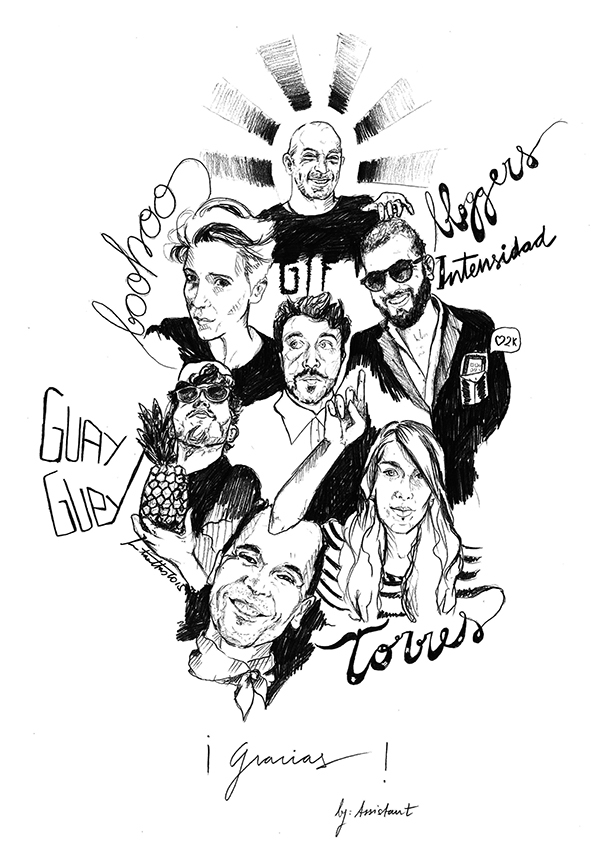 boohoo
bloggers
Intensidad
GIF
♡2K
GUAY
GUEY
Torres
¡ Gracias !
by: Assistant